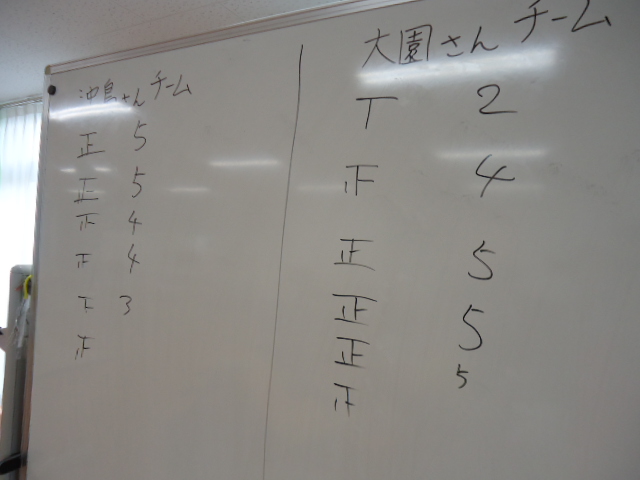 沖島さんチーム
正 5
正 5
正 4
正 4
下 3
正
大園さんチーム
T 2
正 4
正 5
正 5
正 5
正